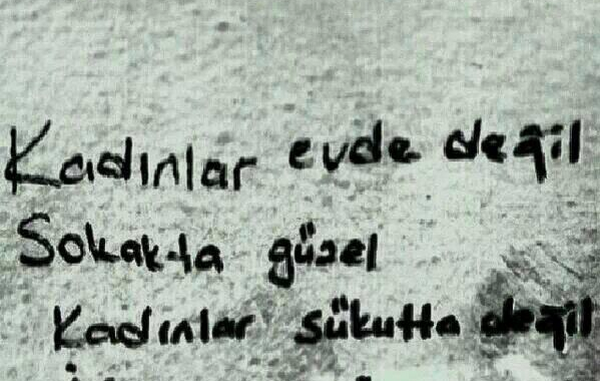 Kadınlar evde değil
Sokakta güzel
Kadınlar sükutta değil